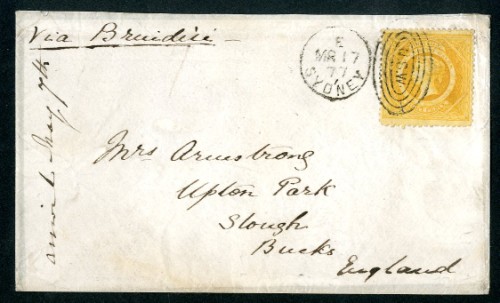 Via Brindisi —
E
MR 17
77
SYDNEY
NSW
Mrs Armstrong
Upton Park
Slough
Bucks
England
May 7th